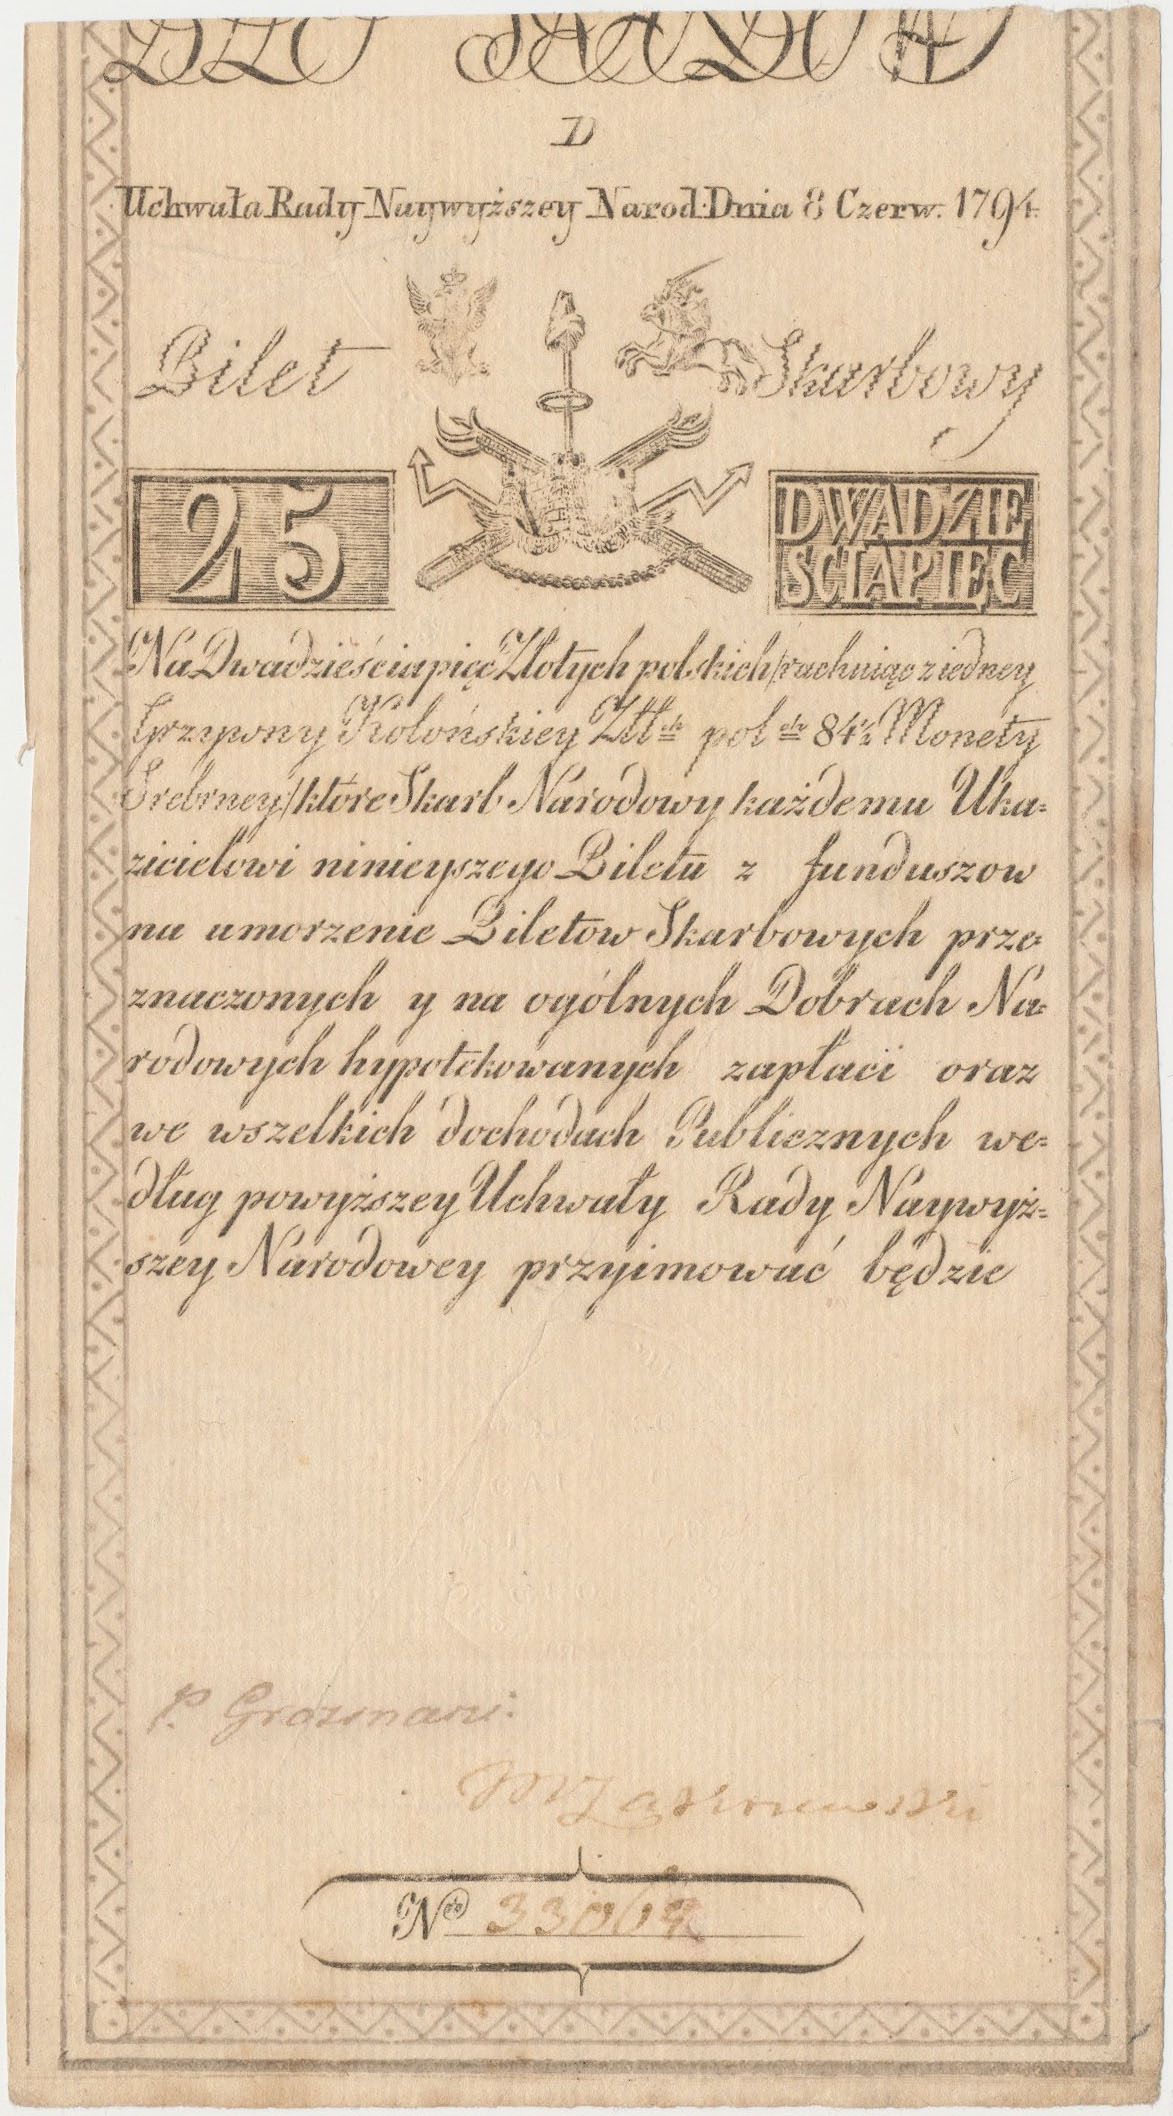 D
Uchwała Rady Naywyższey Narod: Dnia 8 Czerw. 1794.
Bilet Skarbowy
25
DWADZIE
SCIAPIĘC
Na Dwadzieściapięć Złotych polskich /rachuiąc z iedney
Grzywny Kolońskiey Złł ch pol ch 84½ Monety
Srebrney/ które Skarb Narodowy każdemu Uka=
zicielowi ninieyszego Biletu z funduszow
na umorzenie Biletow Skarbowych prze=
znaczonych y na ogólnych Dobrach Na=
rodowych hypotekowanych zapłaci oraz
we wszelkich dochodach Publicznych we=
dług powyższey Uchwały Rady Naywyż=
szey Narodowey przyimować będzie
P. Grozmani.
No